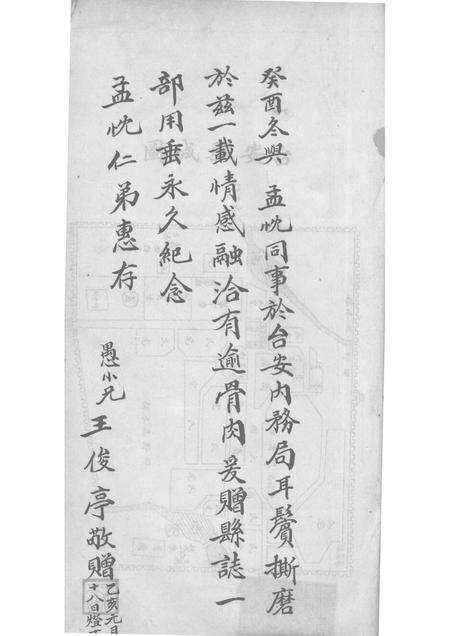 癸酉冬與 孟忱同事於台安內務局耳鬢撕磨
於茲一載情感融洽有逾骨肉爰贈縣誌一
部用垂永久紀念
孟忱仁弟惠存
愚小兄 王俊亭敬贈
乙亥元月
十八日燈下